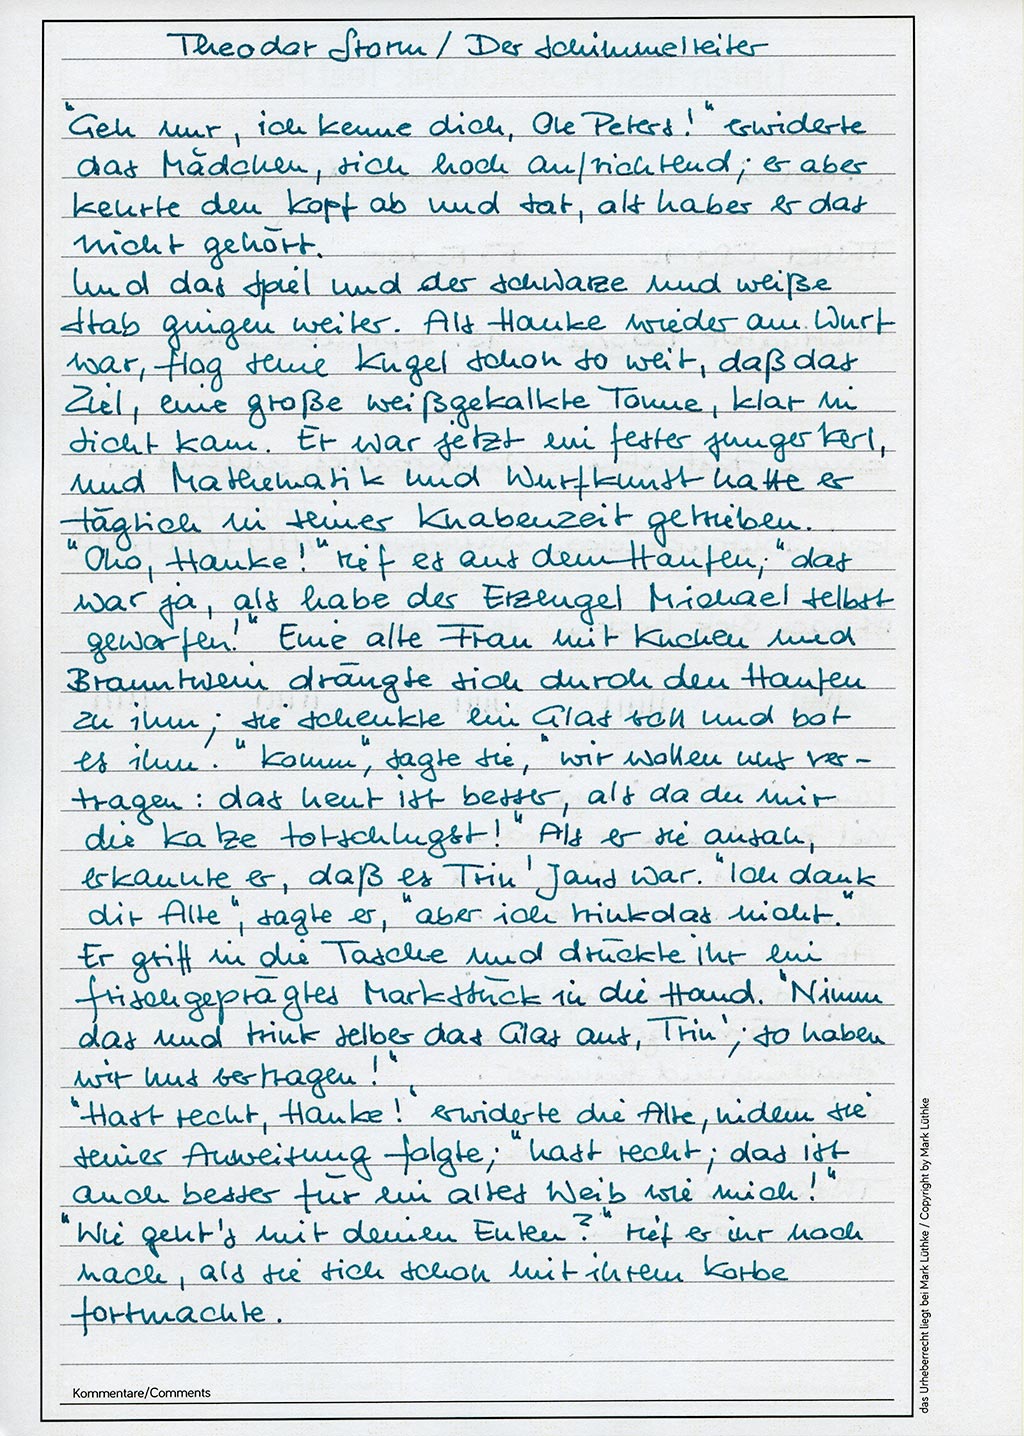 Theodor Storm / Der Schimmelreiter
"Geh nur, ich kenne dich, Ole Peters!" erwiderte
das Mädchen, sich hoch aufrichtend; er aber
kehrte den Kopf ab und tat, als haber er das
nicht gehört.
Und das Spiel und der schwarze und weiße
Stab gingen weiter. Als Hauke wieder am Wurf
war, flog seine Kugel schon so weit, daß das
Ziel, eine große weißgekalkte Tonne, klar in
Sicht kam. Er war jetzt ein fester junger Kerl,
und Mathematik und Wurfkunst hatte er
täglich in seiner Knabenzeit getrieben.
"Oho, Hauke!" rief es aus dem Haufen; "das
war ja, als habe der Erzengel Michael selbst
geworfen!" Eine alte Frau mit Kuchen und
Branntwein drängte sich durch den Haufen
zu ihm; sie schenkte ein Glas voll und bot
es ihm. "Komm", sagte sie, "wir wollen uns ver-
tragen: das heut ist besser, als da du mir
die Katze totschlugst!" Als er sie ansah,
erkannte er, daß es Trin' Jans war. "Ich dank
dir Alte", sagte er, "aber ich trink das nicht."
Er griff in die Tasche und drückte ihr ein
frischgeprägtes Markstück in die Hand. "Nimm
das und trink selber das Glas aus, Trin'; so haben
wir uns vertragen!"
"Hast recht, Hauke!" erwiderte die Alte, indem sie
seiner Anweisung folgte; "hast recht; das ist
auch besser für ein altes Weib wie mich!"
"Wie geht's mit deinen Enten?" rief er ihr noch
nach, als sie sich schon mit ihrem Korbe
fortmachte.
Kommentare/Comments
das Urheberrecht liegt bei Mark Lüthke / Copyright by Mark Lüthke